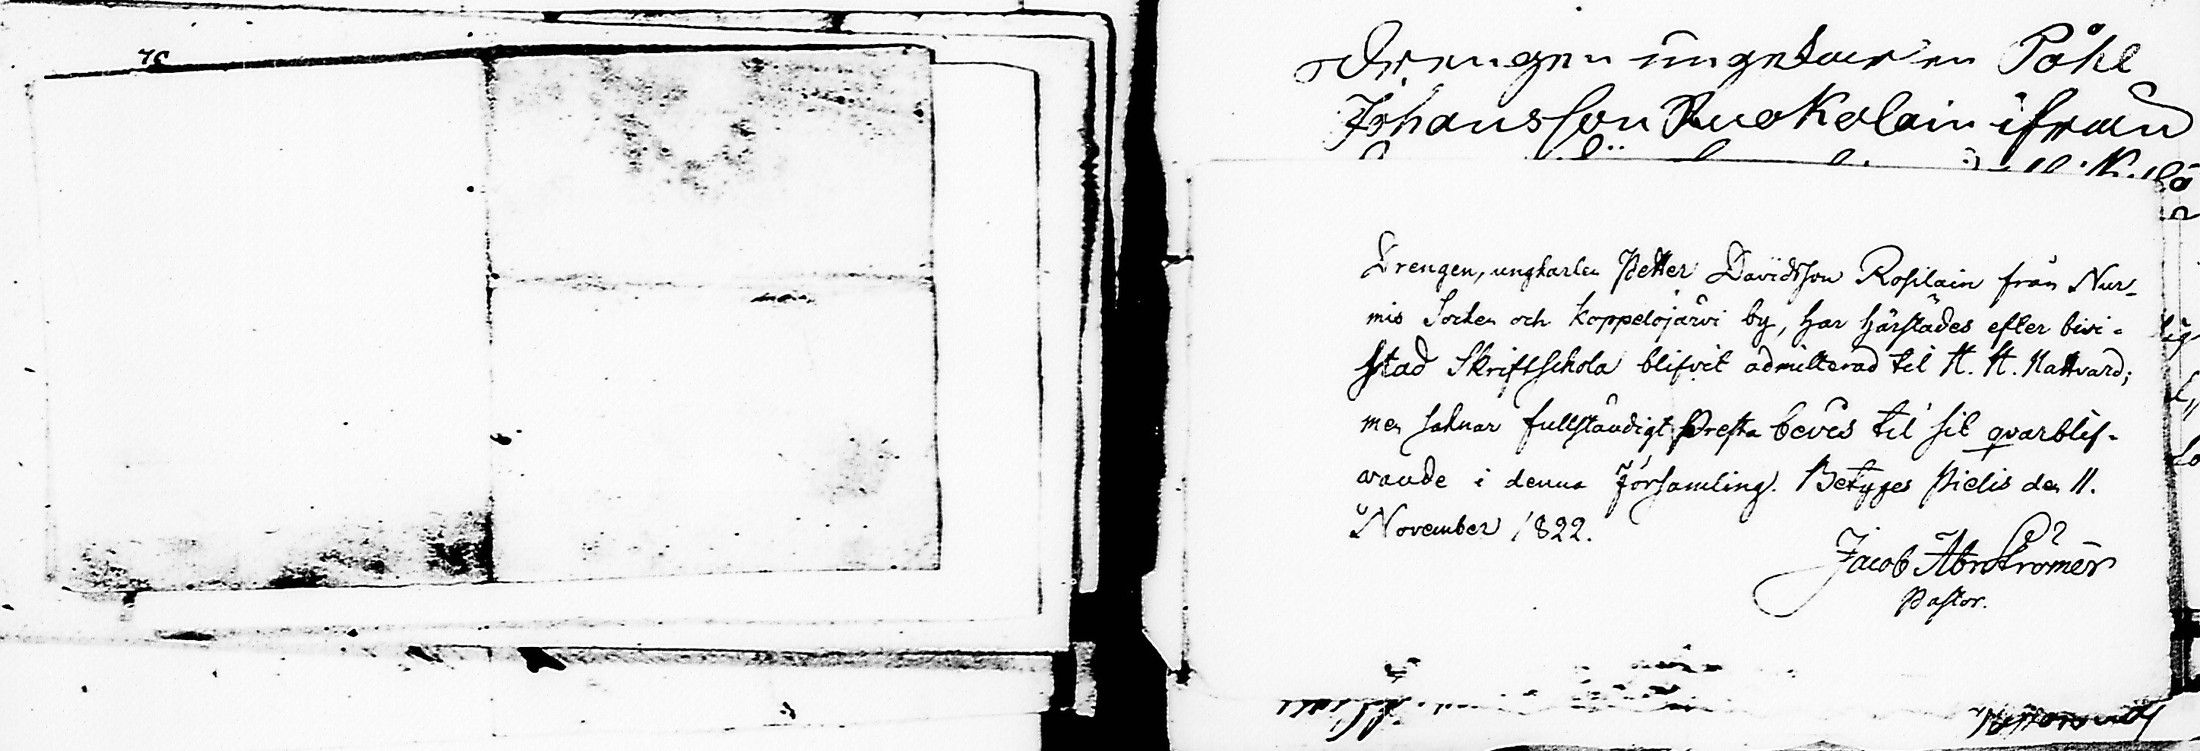 76
Drengen ungkarlen Påhl
Johansson Ruokolain ifrån
Drengen, ungkarlen Petter Davidsson Rosilain från Nur-
mis Socken och Koppelojärvi by, har härstädes efter bivi-
stad Skriftschola blifvit admitterad til H. H. Nattvard;
men saknar fullständigt Presta bevis til sit qvarblif-
vande i denna Församling. Betyges Pielis den 11.
November 1822.
Jacob
Pastor.